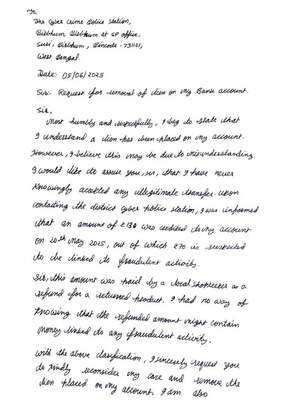 To,
The Cyber Crime Police Station,
Birbhum District at SP office,
Suri, Birbhum, Pincode - 731101,
West Bengal
Date: 05/06/2025
Sub: Request for removal of lien on my Bank account.
Sir,
Most humbly and respectfully, I beg to state that
I understand a lien has been placed on my account.
However, I believe this may be due to misunderstanding.
I would like to assure you, sir, that I have never
knowingly accepted any illegitimate transfer. Upon
contacting the district cyber police station, I was informed
that an amount of was credited to my account
on 10th May 2025, out of which ₹70 is suspected
to be linked to fraudulent activity.
Sir, this amount was paid by a local shopkeeper as a
refund for a returned product. I had no way of
knowing that the refunded amount might contain
money linked to any fraudulent activity.
With the above clarification, I sincerely request you
to kindly reconsider my case and remove the
lien placed on my account. I am also